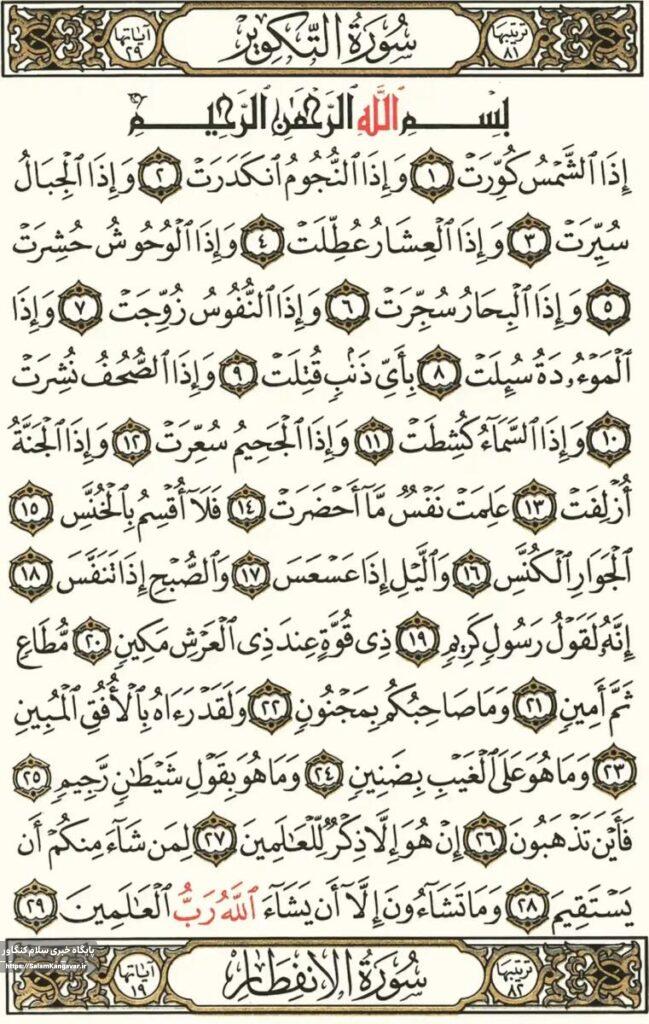 ترتيبها ٨١ سُورَةُ التَّكْوِيرِ آياتها ٢٩
بِسْمِ اللَّهِ الرَّحْمَٰنِ الرَّحِيمِ
إِذَا الشَّمْسُ كُوِّرَتْ ١ وَإِذَا النُّجُومُ انكَدَرَتْ ٢ وَإِذَا الْجِبَالُ
سُيِّرَتْ ٣ وَإِذَا الْعِشَارُ عُطِّلَتْ ٤ وَإِذَا الْوُحُوشُ حُشِرَتْ
٥ وَإِذَا الْبِحَارُ سُجِّرَتْ ٦ وَإِذَا النُّفُوسُ زُوِّجَتْ ٧ وَإِذَا
الْمَوْءُۥدَةُ سُئِلَتْ ٨ بِأَيِّ ذَنۢبٍ قُتِلَتْ ٩ وَإِذَا الصُّحُفُ نُشِرَتْ
١٠ وَإِذَا السَّمَآءُ كُشِطَتْ ١١ وَإِذَا الْجَحِيمُ سُعِّرَتْ ١٢ وَإِذَا الْجَنَّةُ
أُزْلِفَتْ ١٣ عَلِمَتْ نَفْسٌ مَّآ أَحْضَرَتْ ١٤ فَلَآ أُقْسِمُ بِالْخُنَّسِ ١٥
الْجَوَارِ الْكُنَّسِ ١٦ وَالَّيْلِ إِذَا عَسْعَسَ ١٧ وَالصُّبْحِ إِذَا تَنَفَّسَ ١٨
إِنَّهُۥ لَقَوْلُ رَسُولٍ كَرِيمٍ ١٩ ذِي قُوَّةٍ عِندَ ذِي الْعَرْشِ مَكِينٍ ٢٠ مُّطَاعٍ
ثَمَّ أَمِينٍ ٢١ وَمَا صَاحِبُكُم بِمَجْنُونٍ ٢٢ وَلَقَدْ رَءَاهُ بِالْأُفُقِ الْمُبِينِ
٢٣ وَمَا هُوَ عَلَى الْغَيْبِ بِضَنِينٍ ٢٤ وَمَا هُوَ بِقَوْلِ شَيْطَٰنٍ رَّجِيمٍ ٢٥
فَأَيْنَ تَذْهَبُونَ ٢٦ إِنْ هُوَ إِلَّا ذِكْرٌ لِّلْعَٰلَمِينَ ٢٧ لِمَن شَآءَ مِنكُمْ أَن
يَسْتَقِيمَ ٢٨ وَمَا تَشَآءُونَ إِلَّآ أَن يَشَآءَ اللَّهُ رَبُّ الْعَٰلَمِينَ ٢٩
ترتيبها ٨٢ سُورَةُ الْانفِطَارِ آياتها ١٩
پایگاه خبری سلام کنگاور
https://SalamKangavar.ir